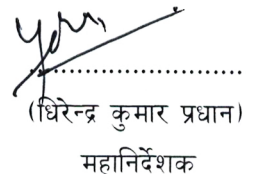 (धिरेन्द्र कुमार प्रधान)
महानिर्देशक